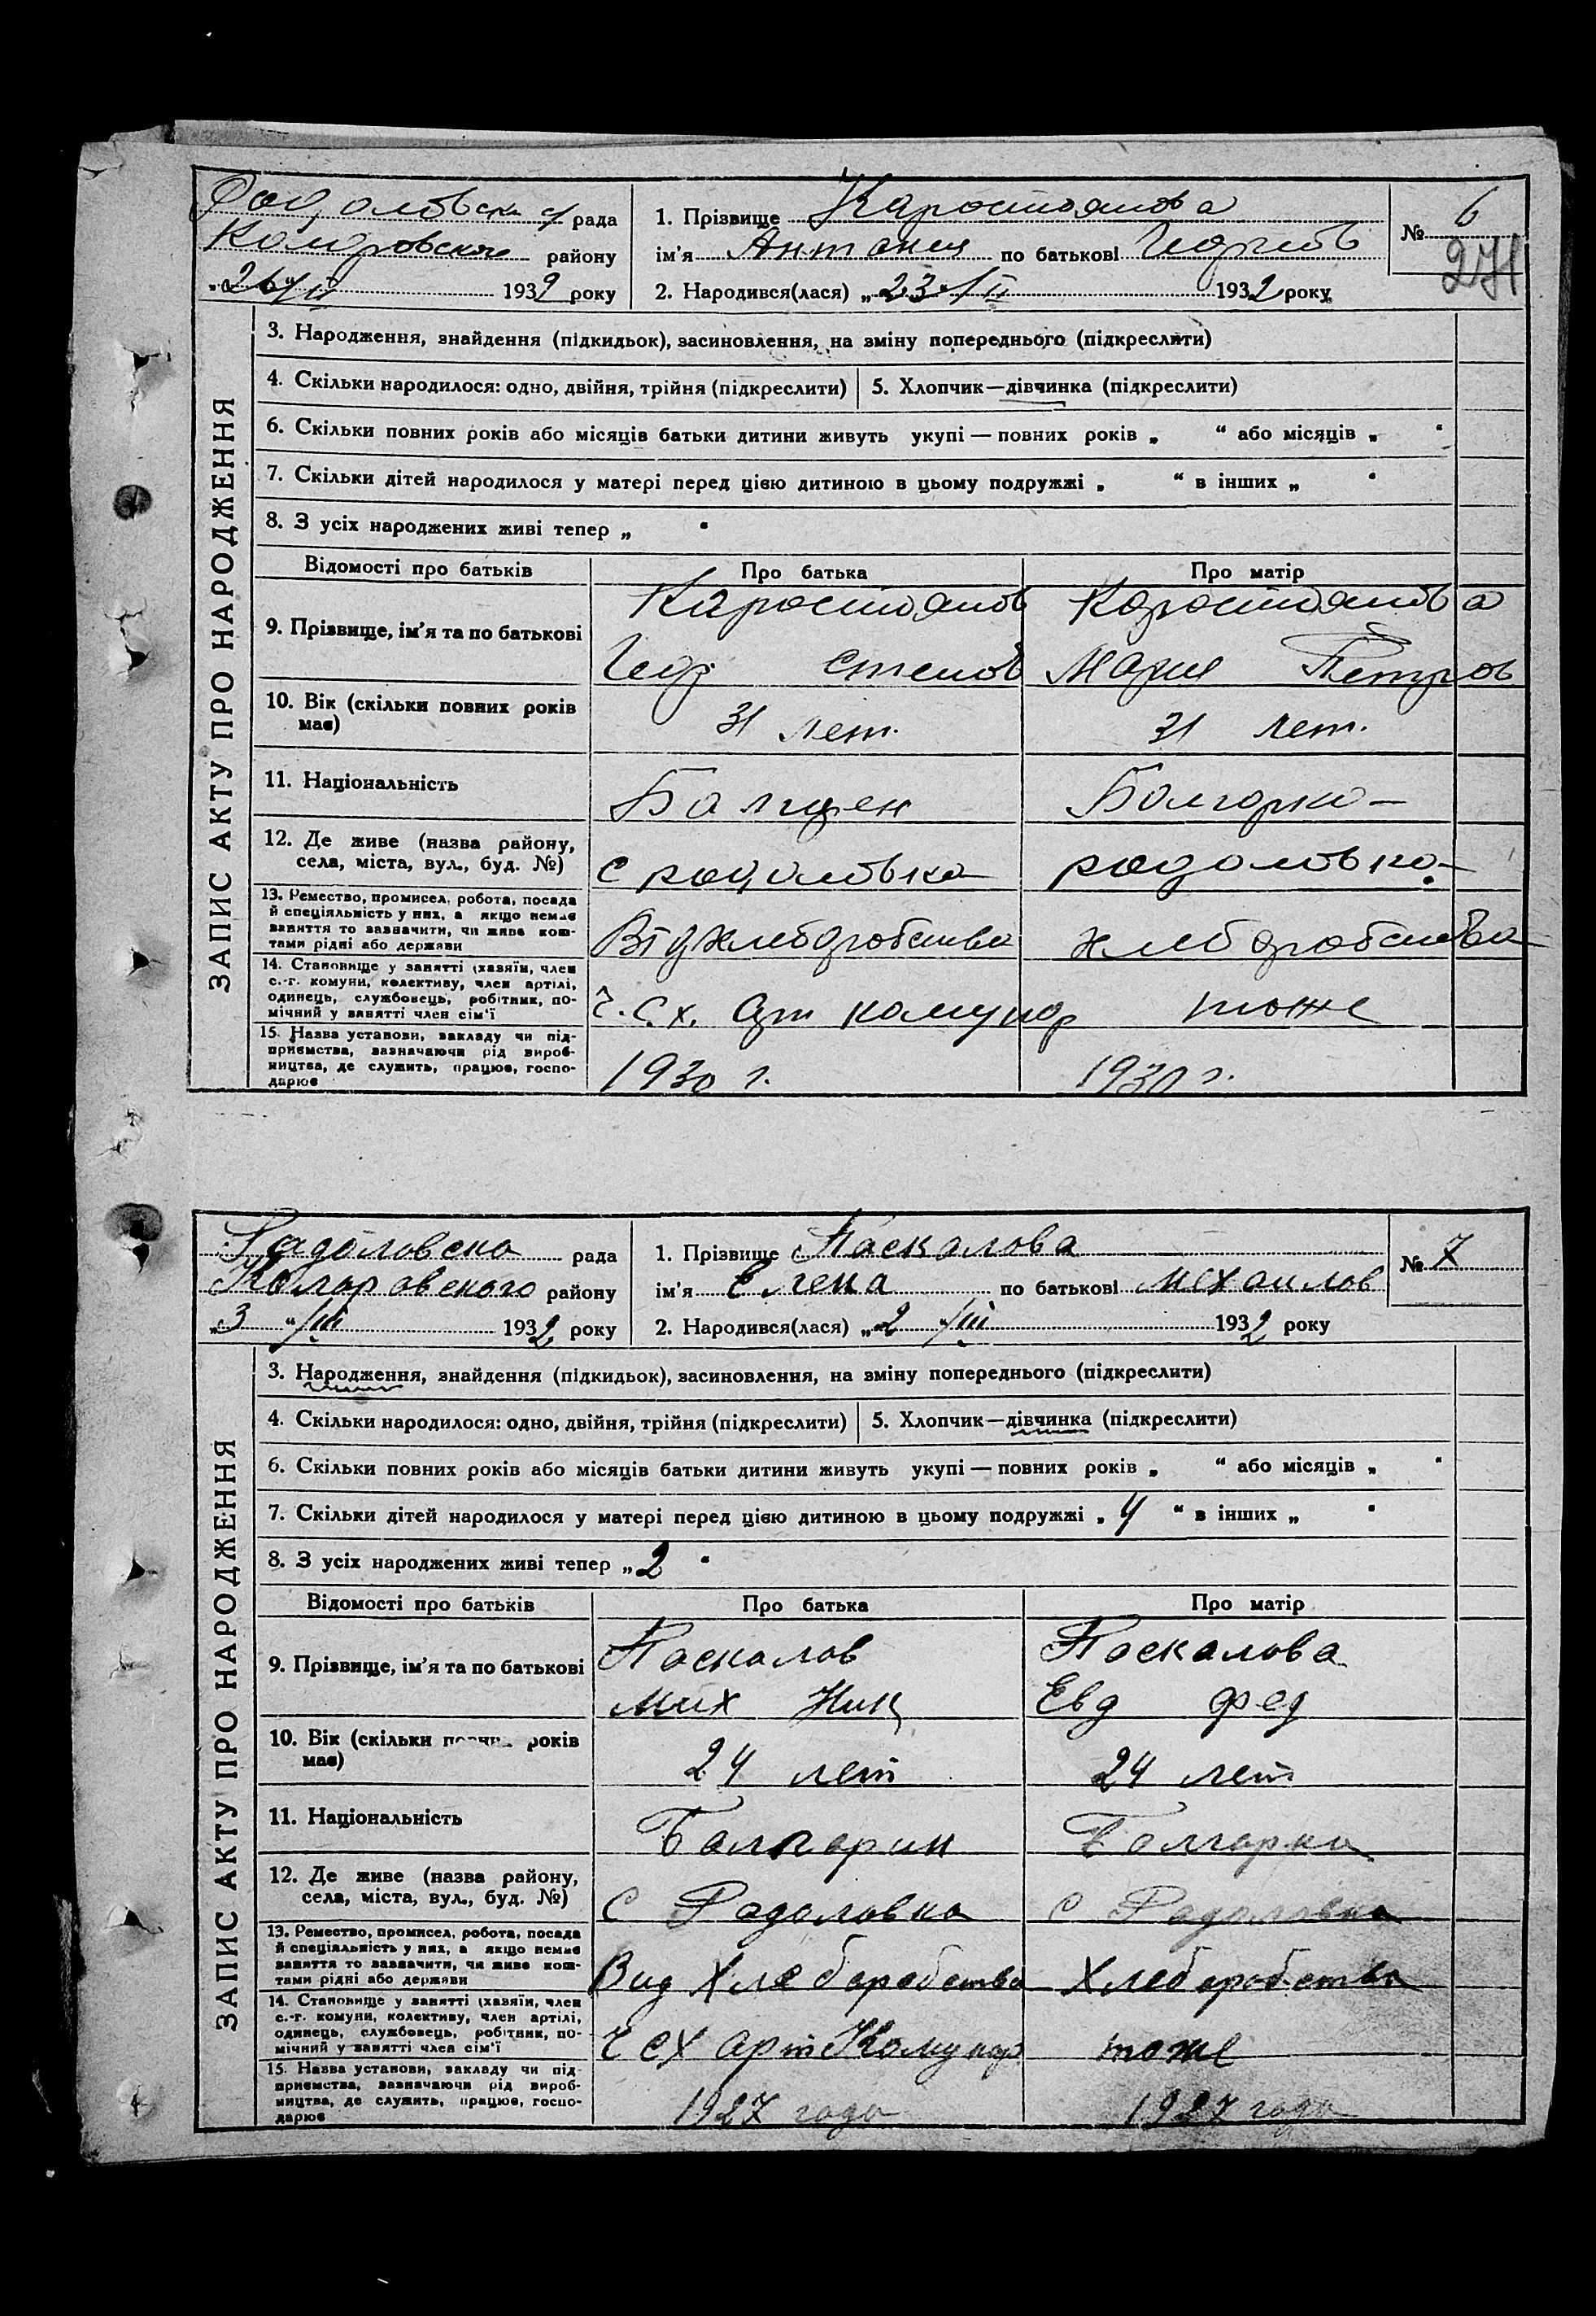 Радоловска с/рада
Коларовского району
„26“/II 1932 року
1. Прізвище Каростоянова
ім'я по батькові Георгиев
2. Народився(лася) „23“/II 1932 року
№ 6
271
ЗАПИС АКТУ ПРО НАРОДЖЕННЯ
3. Народження, знайдення (підкидьок), засиновлення, на зміну попереднього (підкреслити)
4. Скільки народилося: одно, двійня, трійня (підкреслити) 5. Хлопчик—дівчинка (підкреслити)
6. Скільки повних років або місяців батьки дитини живуть укупі — повних років „ “ або місяців „ “
7. Скільки дітей народилося у матері перед цією дитиною в цьому подружжі „ “ в інших „ “
8. З усіх народжених живі тепер „ “
Відомості про батьків Про батька Про матір
9. Прізвище, ім'я та по батькові
Каростоянов Каростоянова
Геор Степов Мария Петров
10. Вік (скільки повних років має)
31 лет. 31 лет.
11. Національність
Болгарка
12. Де живе (назва району, села, міста, вул., буд. №)
с радоловка радоловка
13. Ремество, промисел, робота, посада й спеціяльність у них, а якщо немає заняття то зазначити, чи живе коштами рідні або держави
Від хлебдробства хлебдробства
14. Становище у занятті (хазяїн, член с.-г. комуни, колективу, член артілі, одинець, службовець, робітник, помічний у занятті член сім'ї
Ч. с. х. арт комунар тоже
15. Назва установи, закладу чи підприємства, зазначаючи рід виробництва, де служить, працює, господарює
1930 г. 1930 г.
Радоловска рада
Коларовского району
„3“/III 1932 року
1. Прізвище Паскалова
ім'я Елена по батькові Мехаилов
2. Народився(лася) „2“/III 1932 року
№ 7
ЗАПИС АКТУ ПРО НАРОДЖЕННЯ
3. Народження, знайдення (підкидьок), засиновлення, на зміну попереднього (підкреслити)
4. Скільки народилося: одно, двійня, трійня (підкреслити) 5. Хлопчик—дівчинка (підкреслити)
6. Скільки повних років або місяців батьки дитини живуть укупі — повних років „ “ або місяців „ “
7. Скільки дітей народилося у матері перед цією дитиною в цьому подружжі „4“ в інших „ “
8. З усіх народжених живі тепер „2“
Відомості про батьків Про батька Про матір
9. Прізвище, ім'я та по батькові
Паскалов Паскалова
Мих Ник Евд Фед
10. Вік (скільки повних років має)
24 лет 24 лет
11. Національність
Балгарин Болгарка
12. Де живе (назва району, села, міста, вул., буд. №)
С Радоловка С Радоловка
13. Ремество, промисел, робота, посада й спеціяльність у них, а якщо немає заняття то зазначити, чи живе коштами рідні або держави
Вид Хлеборобства Хлеборобства
14. Становище у занятті (хазяїн, член с.-г. комуни, колективу, член артілі, одинець, службовець, робітник, помічний у занятті член сім'ї
Ч СХ арт Комунар тоже
15. Назва установи, закладу чи підприємства, зазначаючи рід виробництва, де служить, працює, господарює
1927 года 1927 года